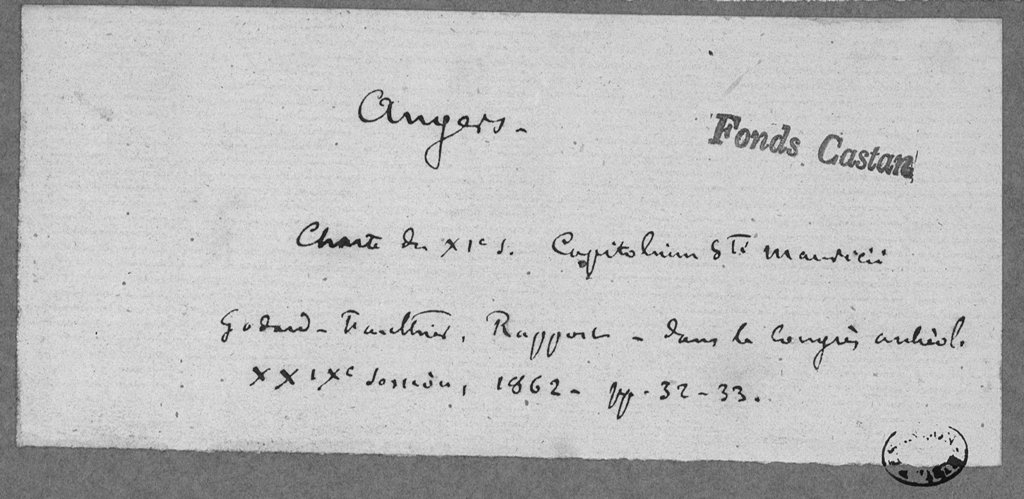 Angers -
Fonds Castan
Charte du XIe s. Capitolium Sti Mauricii
Godard-Faultrier, Rapport - dans le Congrès archéol.
XXIXe session, 1862 - pp. 32-33.